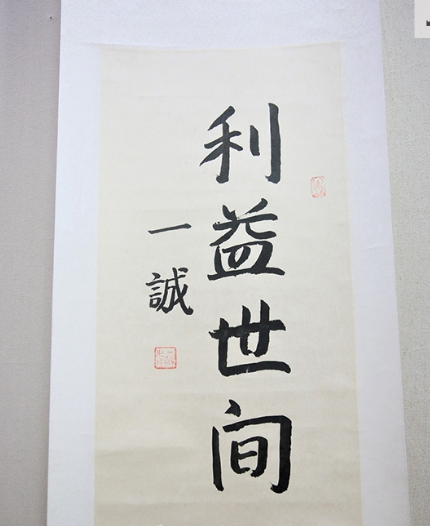 利益世间
一誠